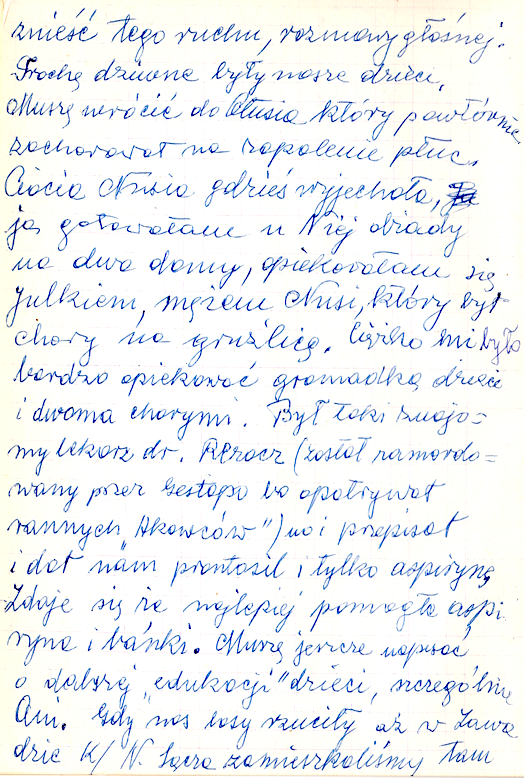 znieść tego ruchu, rozmowy głośnej.
Trochę dziwne były nasze dzieci.
Muszę wrócić do Olusia który powtórnie
zachorował na zapalenie płuc.
Ciocia Nusia gdzieś wyjechała,
ja gotowałam u Niej obiady
na dwa domy, opiekowałam się
Julkiem, mężem Nusi, który był
chory na gruźlicę. Ciężko mi było
bardzo opiekować gromadką dzieci
i dwoma chorymi. Był taki znajo=
my lekarz dr. (został zamordo=
wany przez Gestapo bo opatrywał
rannych „Akowców") no i przepisał
i dał nam prontosil i tylko aspirynę
Zdaje się że najlepiej pomogła aspi
ryna i bańki. Muszę jeszcze napisać
o dalszej „edukacji" dzieci, szczególnie
Ani. Gdy nas losy rzuciły aż w Zawa
dzie K/ N. Sącza zamieszkaliśmy tam